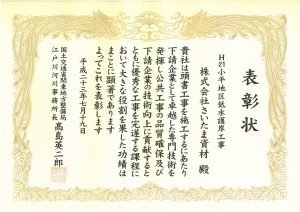 表彰状
H21小平地区低水護岸工事
株式会社さいたま資材 殿
貴社は頭書工事を施工するにあたり
下請企業として卓越した専門技術を
発揮し公共工事の品質確保及び
下請企業の技術向上に貢献すると
ともに優秀な工事を完遂する課程に
おいて大きな役割を果した功績は
まことに顕著であります
よってこれを表彰します
平成二十三年七月十九日
国土交通省関東地方整備局
江戸川河川事務所長 高島英二郎